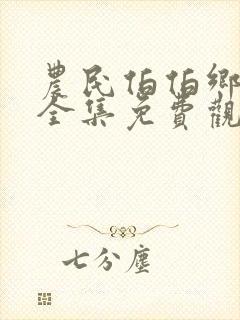 農民伯伯鄉
全集免費觀
七分塵